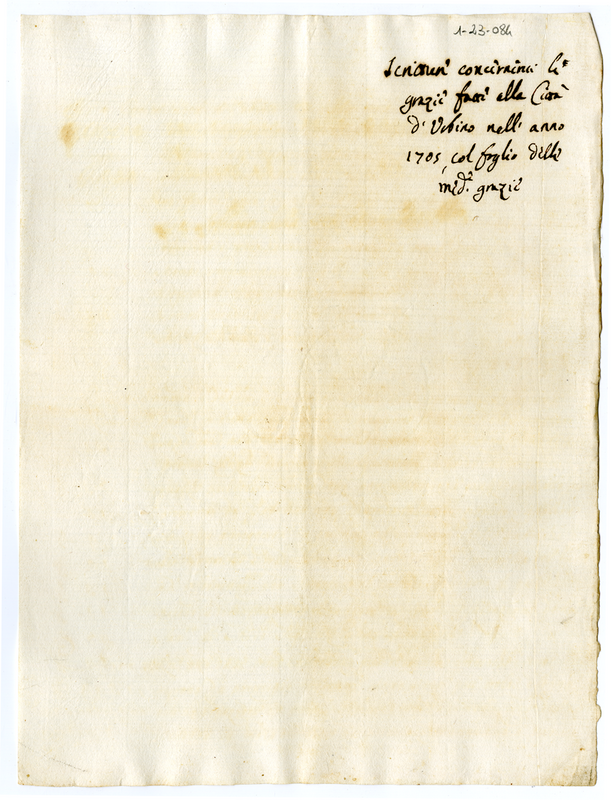 1-23-084
Scritture concernenti le
grazie fatte alla Città
d'Urbino nell'anno
1705, col foglio delle
med.e grazie